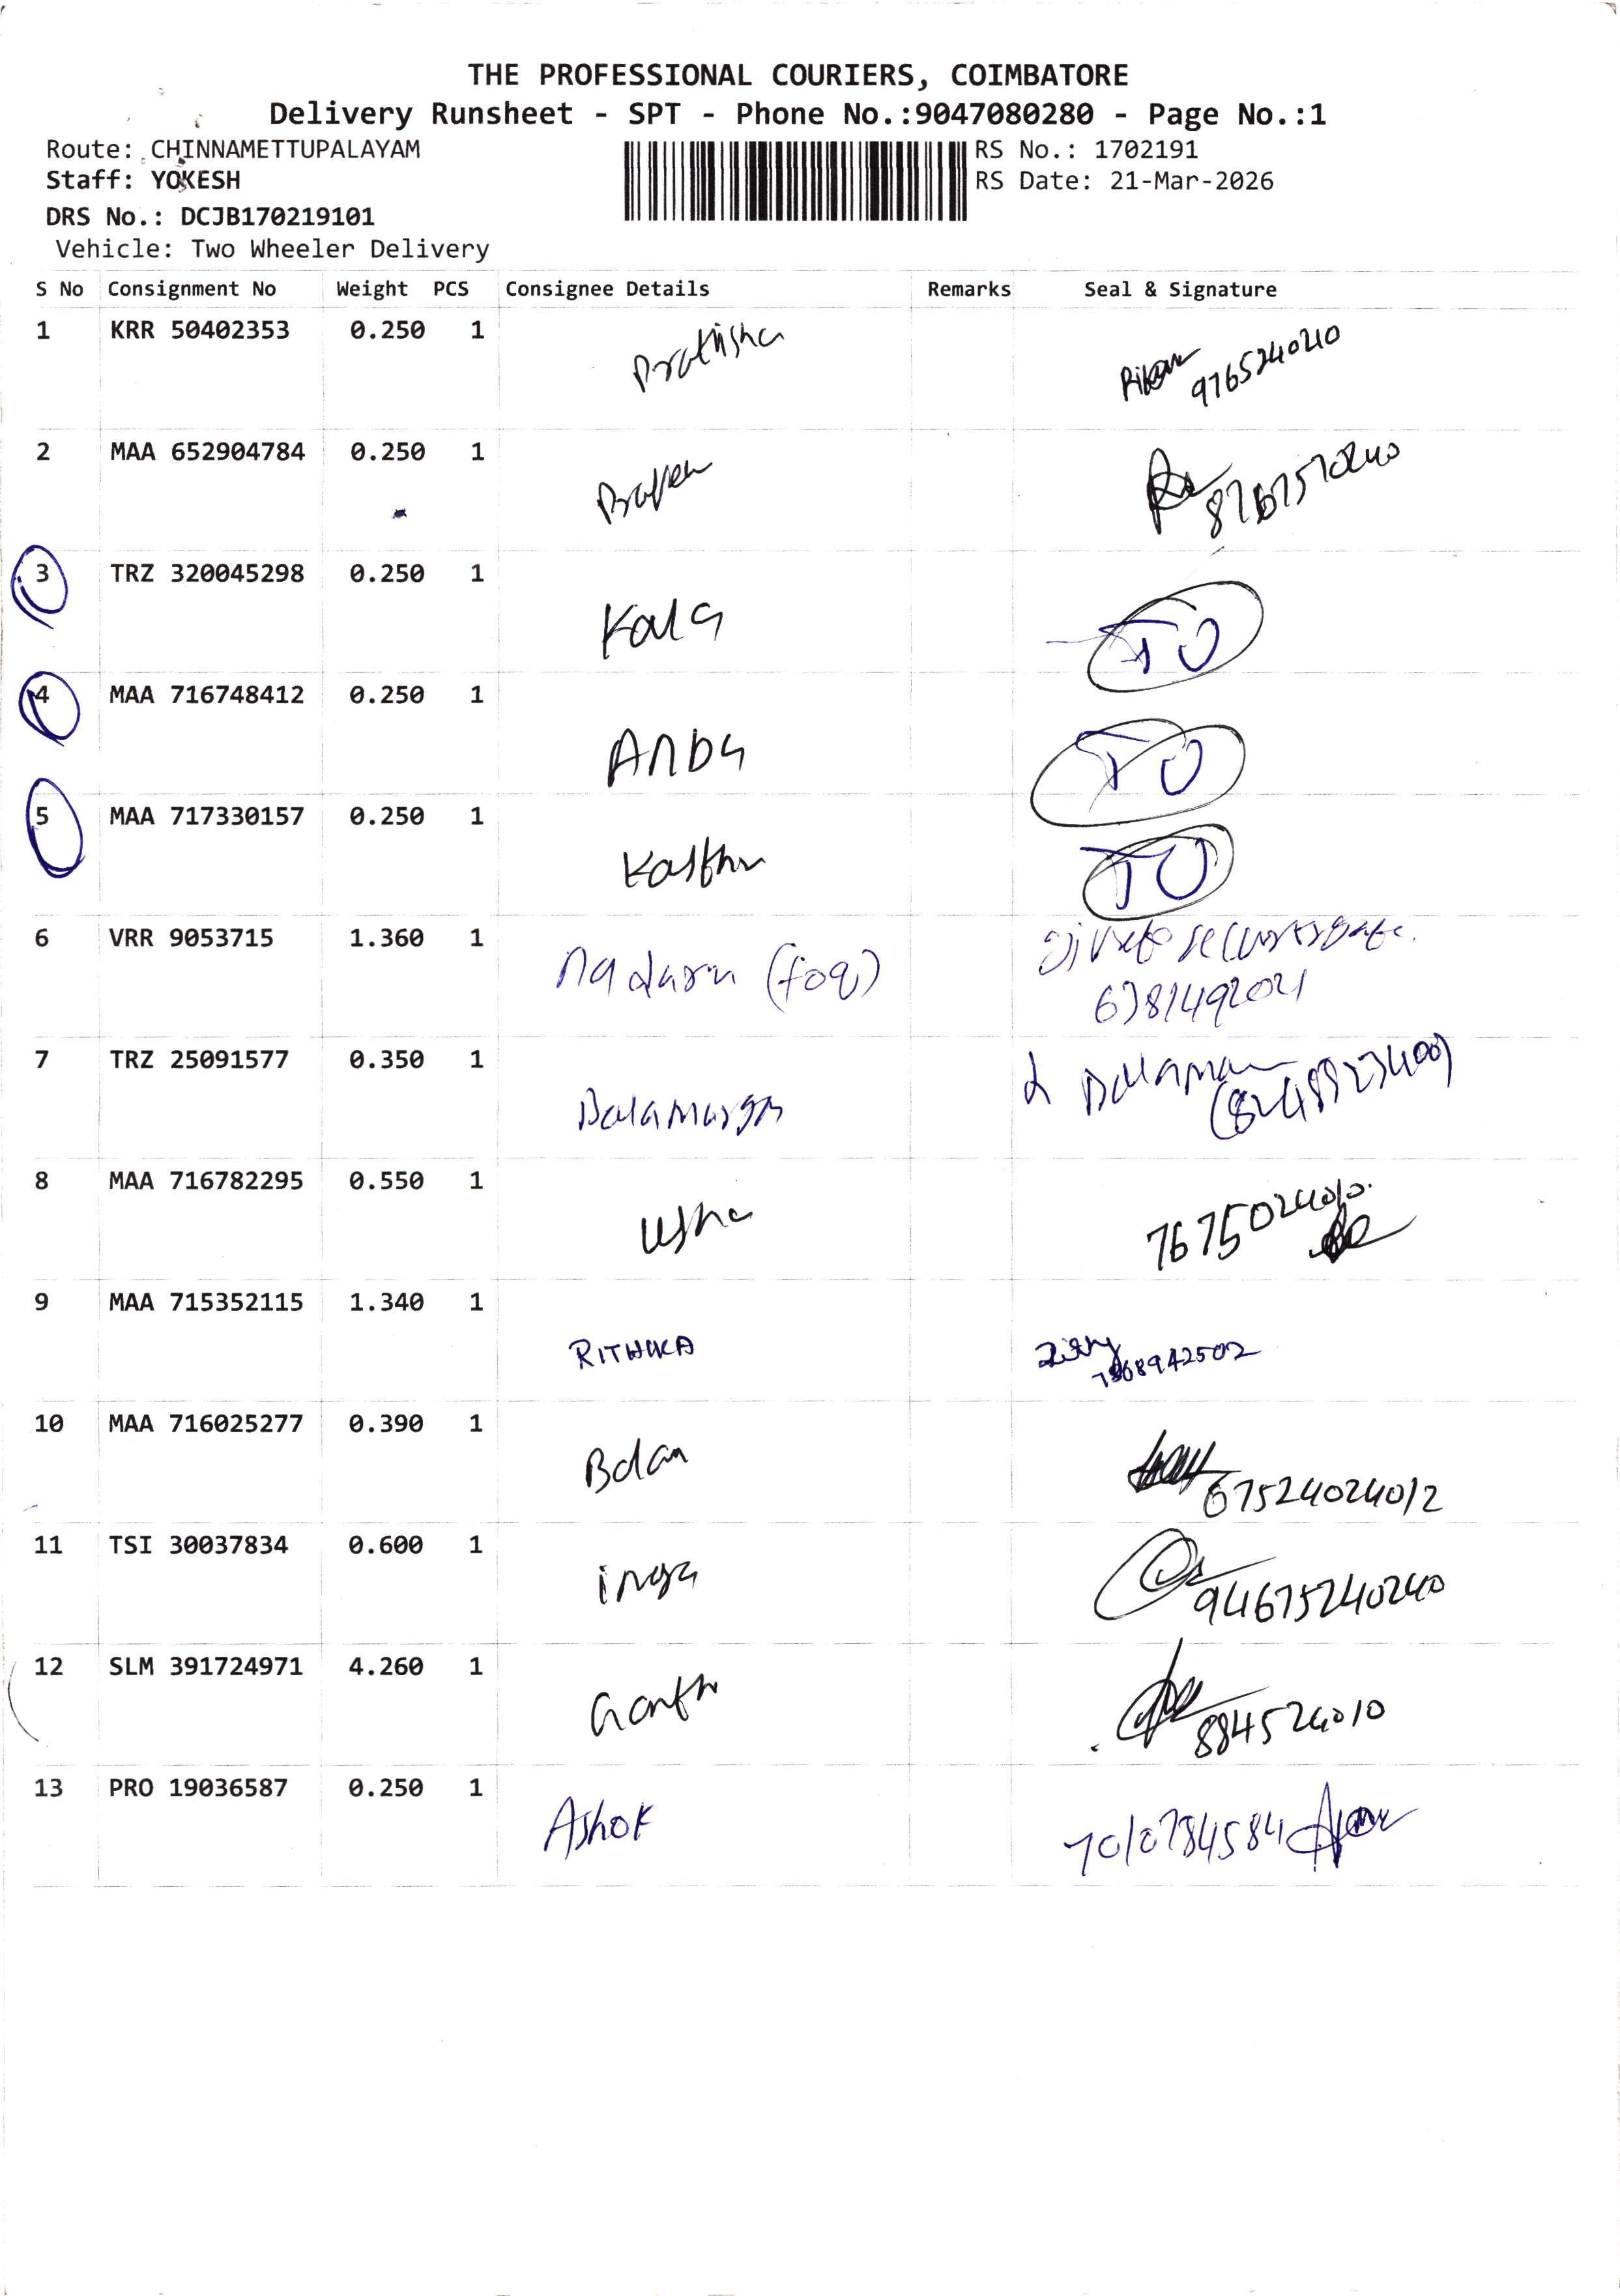 THE PROFESSIONAL COURIERS, COIMBATORE
Delivery Runsheet - SPT - Phone No.:9047080280 - Page No.:1
Route: CHINNAMETTUPALAYAM
RS No.: 1702191
Staff: YOKESH
RS Date: 21-Mar-2026
DRS No.: DCJB170219101
Vehicle: Two Wheeler Delivery
S No Consignment No Weight PCS Consignee Details Remarks Seal & Signature
1 KRR 50402353 0.250 1
Prathisha
9765240240
2 MAA 652904784 0.250 1
3 TRZ 320045298 0.250 1
Kala
TO
4 MAA 716748412 0.250 1
ANBA
TO
5 MAA 717330157 0.250 1
TO
6 VRR 9053715 1.360 1
6381492021
7 TRZ 25091577 0.350 1
8 MAA 716782295 0.550 1
Usha
9 MAA 715352115 1.340 1
RITHIKA
10 MAA 716025277 0.390 1
Balan
67524024012
11 TSI 30037834 0.600 1
94675240240
12 SLM 391724971 4.260 1
884524010
13 PRO 19036587 0.250 1
Ashok
7010784584